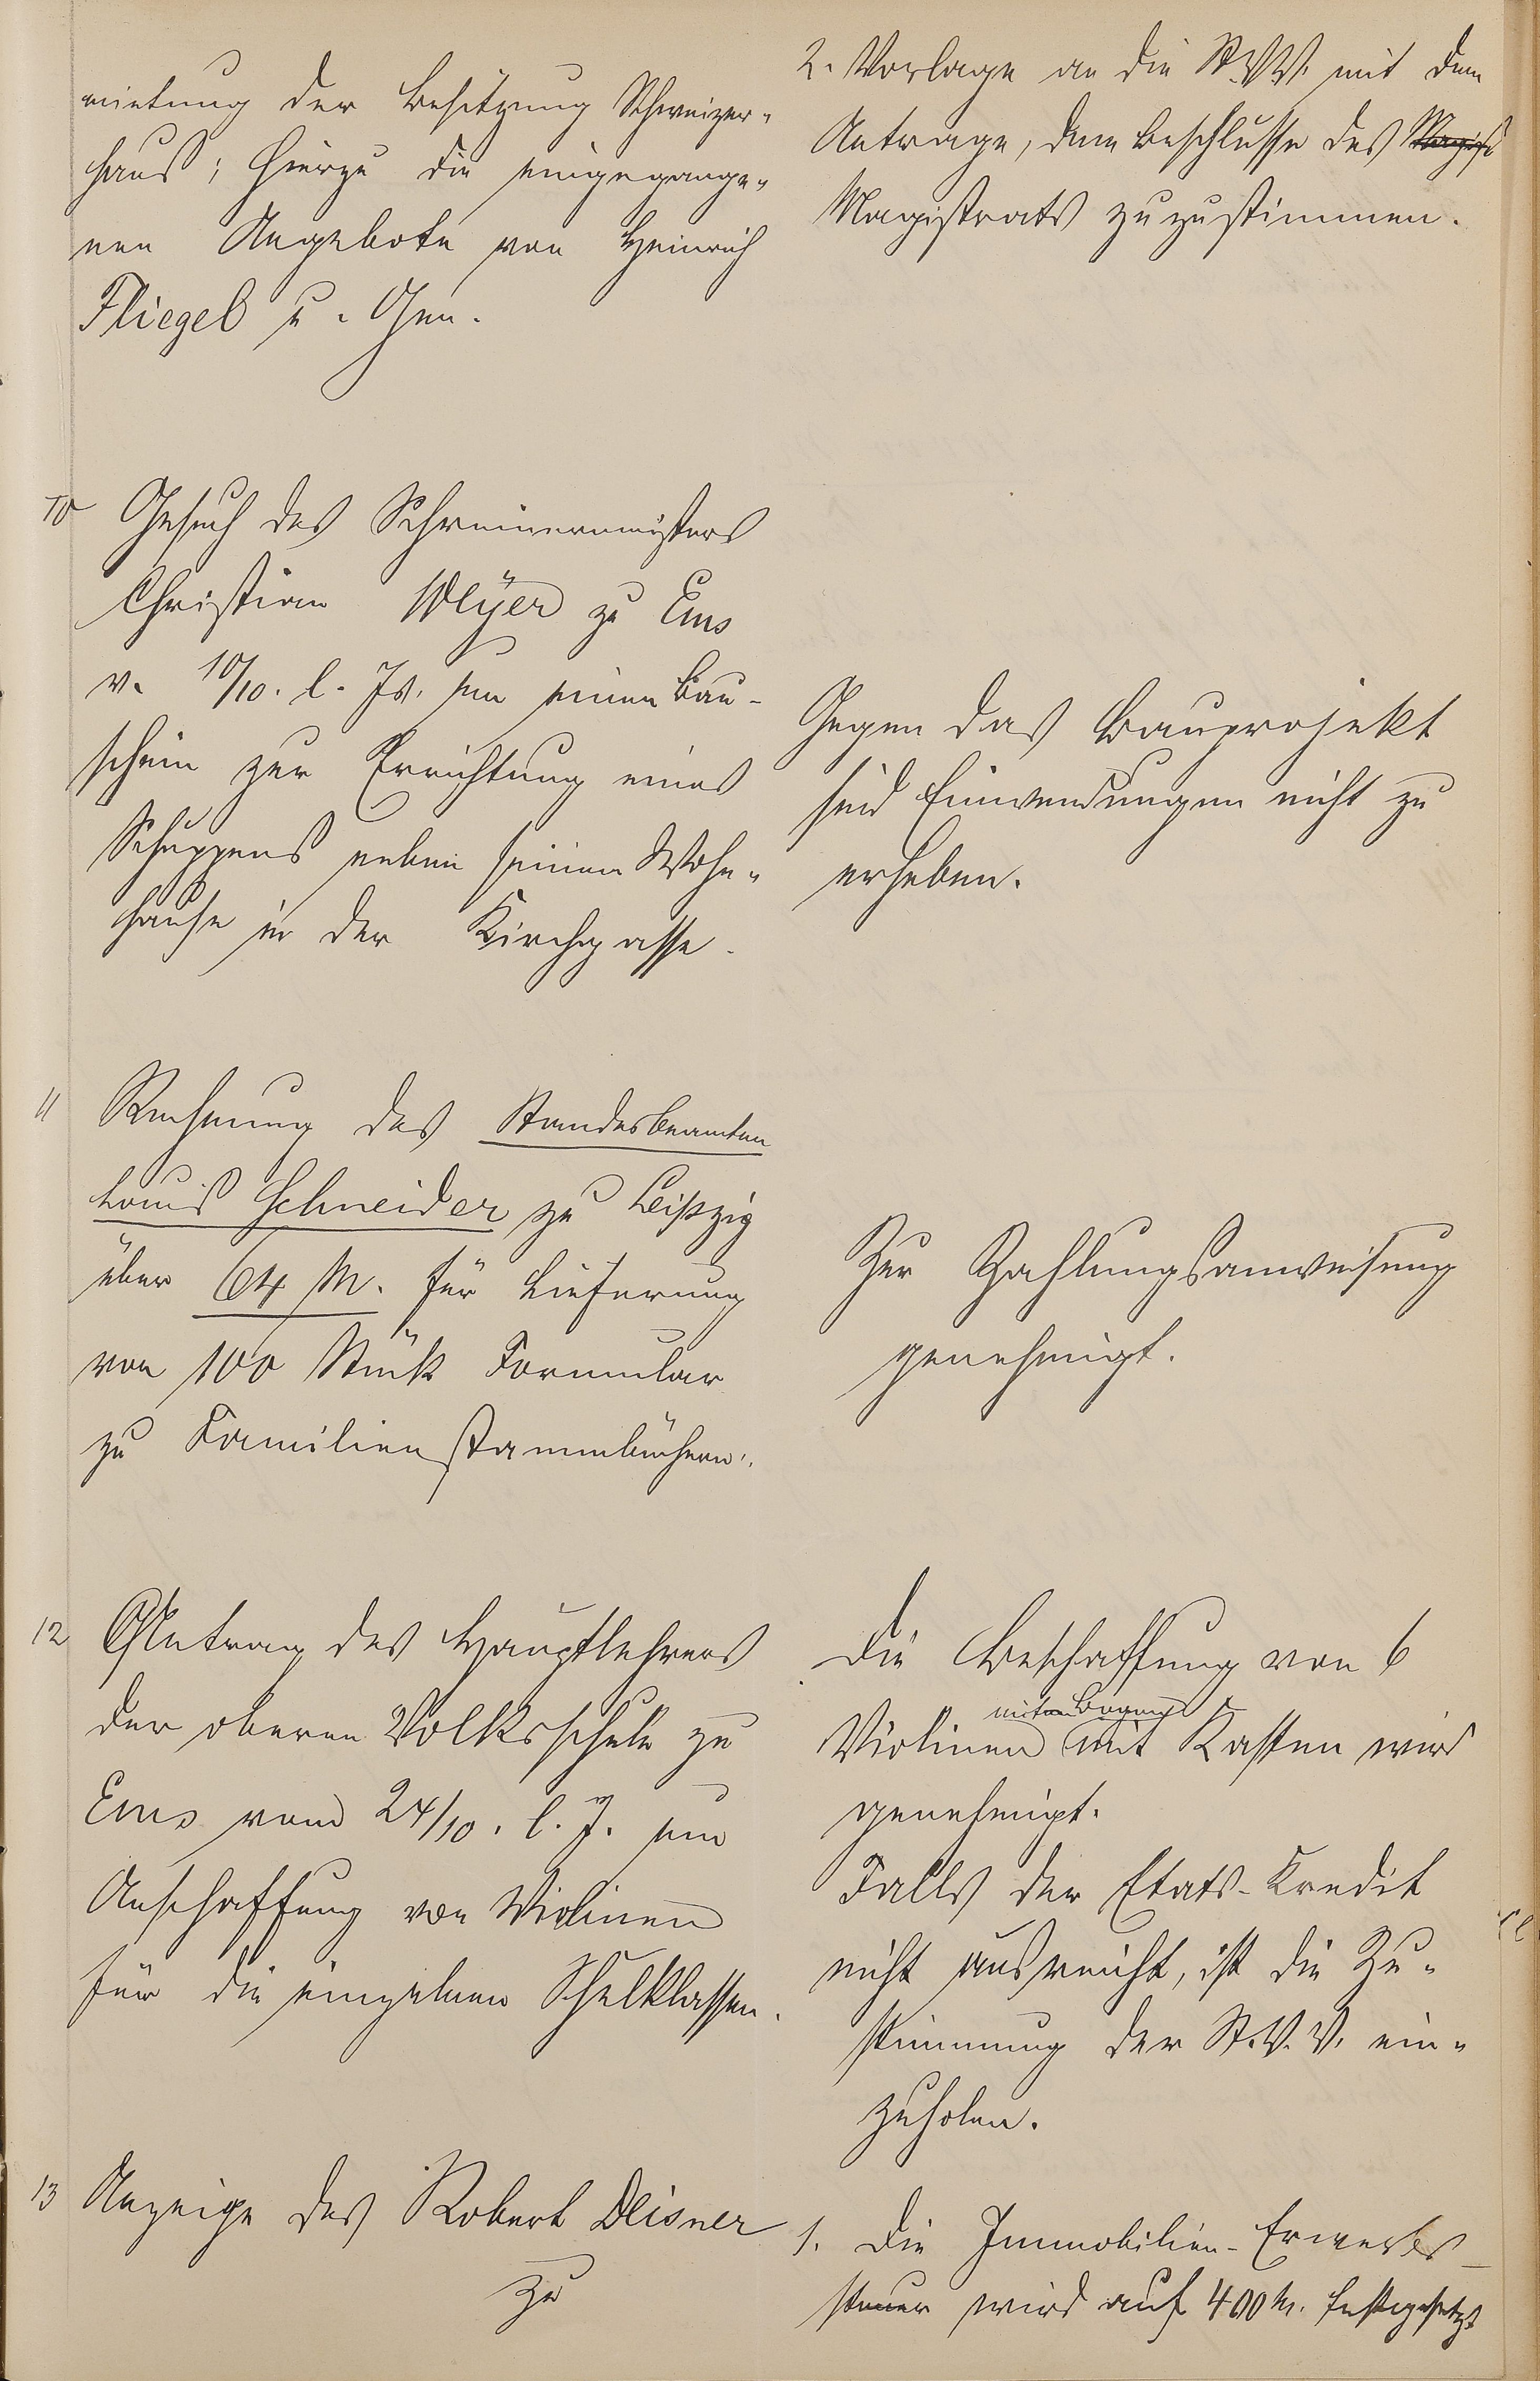 mietung der Besitzung Schweizer-
haus; hierzu die eingegange-
nen Angebote von Heinrich
Fliegel u. Gen.
2. Vorlage an die St.V.V. mit dem
Antrage, dem Beschlusse des Magist
Magistrats zuzustimmen.
10 Gesuch des Schreinermeisters
Christian Weyer zu Ems
v. 10/10. l. Js. um einen Bau-
schein zur Errichtung eines
Schuppens neben seinem Wohn-
hause in der Kirchgasse.
Gegen das Bauprojekt
sind Einwendungen nicht zu
erheben.
11 Rechnung des Standesbeamten
Louis Schneider zu Leipzig
über 64 M. für Lieferung
von 100 Stück Formular
zu Familienstammbüchern.
Zur Zahlungsanweisung
genehmigt.
12 Antrag des Hauptlehrers
der oberen Volksschule zu
Ems vom 24/10. l. J. um
Anschaffung von Violinen
für die einzelnen Schulklassen.
Die Beschaffung von 6
mit Bogen
Violinen mit Kasten wird
genehmigt.
Falls der Etats-Kredit
nicht ausreicht, ist die Zu-
stimmung der St.V.V. ein-
zuholen.
13 Anzeige des Robert Deisner
zu
1. Die Immobilien-Erwerbs-
steuer wird auf 400 M. festgesetzt